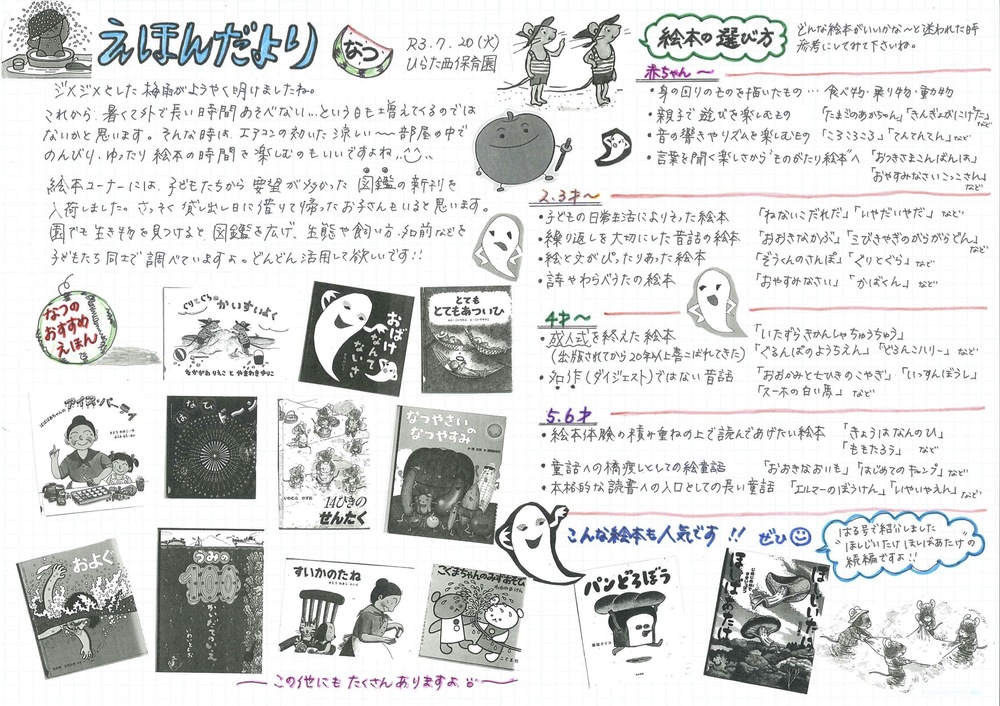 えほんだより
なつ
R3.7.20(火)
ひらた西保育園
ジメジメとした梅雨がようやく明けましたね。
これから、暑くて外で長い時間あそべない…という日も増えてくるのでは
ないかと思います。そんな時は、エアコンの効いた涼しい〜部屋の中で
のんびり、ゆったり絵本の時間を楽しむのもいいですよね
絵本コーナーには、子どもたちから要望が多かった図鑑の新刊を
入荷しました。さっそく貸し出し日に借りて帰ったお子さんもいると思います。
園でも生き物を見つけると図鑑を広げ、生態や飼い方、名前などを
子どもたち同士で調べていますよ。どんどん活用して欲しいです!!
なつの
おすすめ
えほん
ぐりとぐらの
かいすいよく
なかがわりえこ と やまわきゆりこ
おばけ
なんて
ないさ
とても
とてもあついひ
アイス・パーティ
はなび
ドーン
14ひきの
せんたく
いわむら かずお
なつやさいの
なつやすみ
およぐ
うみの
100
かいだてのいえ
すいかのたね
こぐまちゃんのみずあそび
この他にもたくさんありますよ
絵本の選び方
どんな絵本がいいかな〜と迷われた時
参考にしてみて下さいね。
赤ちゃん〜
・身の回りのものを描いたもの … 食べ物・乗り物・動物
・親子で遊びを楽しむもの 「たまごのあかちゃん」「きんぎょがにげた」など
・音の響きやリズムを楽しむもの 「ころころころ」「てんてんてん」など
・言葉を聞く楽しさから“ものがたり絵本”へ 「おつきさまこんばんは」
「おやすみなさいこっこさん」など
2.3才〜
・子どもの日常生活によりそった絵本 「ねないこだれだ」「いやだいやだ」など
・繰り返しを大切にした昔話の絵本 「おおきなかぶ」「三びきやぎのがらがらどん」など
・絵と文がぴったりあった絵本 「ぞうくんのさんぽ」「ぐりとぐら」など
・詩やわらべうたの絵本 「おやすみなさい」「かばくん」など
4才〜
・成人式を終えた絵本 「いたずらきかんしゃちゅうちゅう」
(出版されてから20年以上喜こばれてきた) 「ぐるんぱのようちえん」「どろんこハリー」など
・名作(ダイジェスト)ではない昔話 「おおかみと七ひきのこやぎ」「いっすんぼうし」
「スーホの白い馬」など
5.6才
・絵本体験の積み重ねの上で読んであげたい絵本 「きょうはなんのひ」
「ももたろう」など
・童話への橋渡しとしての絵童話 「おおきなおいも」「はじめてのキャンプ」など
・本格的な読書への入口としての長い童話 「エルマーのぼうけん」「いやいやえん」など
こんな絵本も人気です!! ぜひ
はる号で紹介しました
“ほしじいたけ ほしばあたけ”の
続編ですよ!!
パンどろぼう
柴田ケイコ
ほしじいたけ
ほしばあたけ